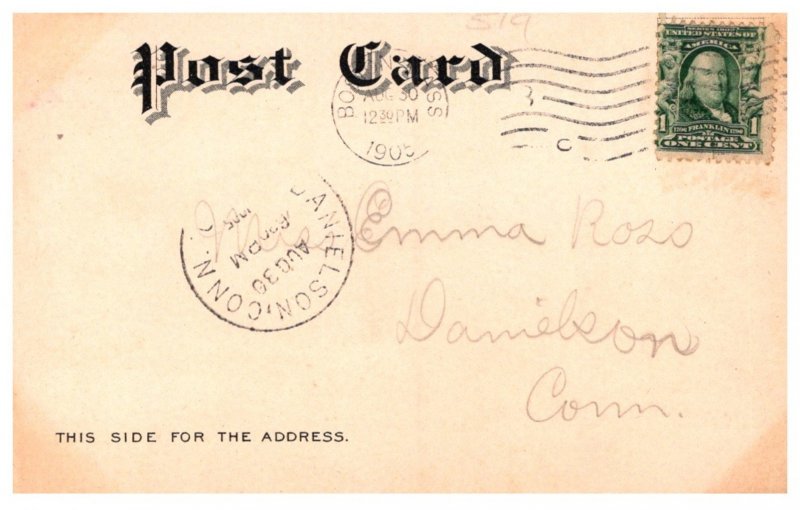 519
Post Card
AUG 30
12 30 PM
1905
SERIES 1902
UNITED STATES OF
AMERICA
1706 FRANKLIN 1790
POSTAGE
1 ONE CENT
DANIELSON, CONN.
AUG 30
PM
1905
Emma Ross
Danielson
Conn.
THIS SIDE FOR THE ADDRESS.